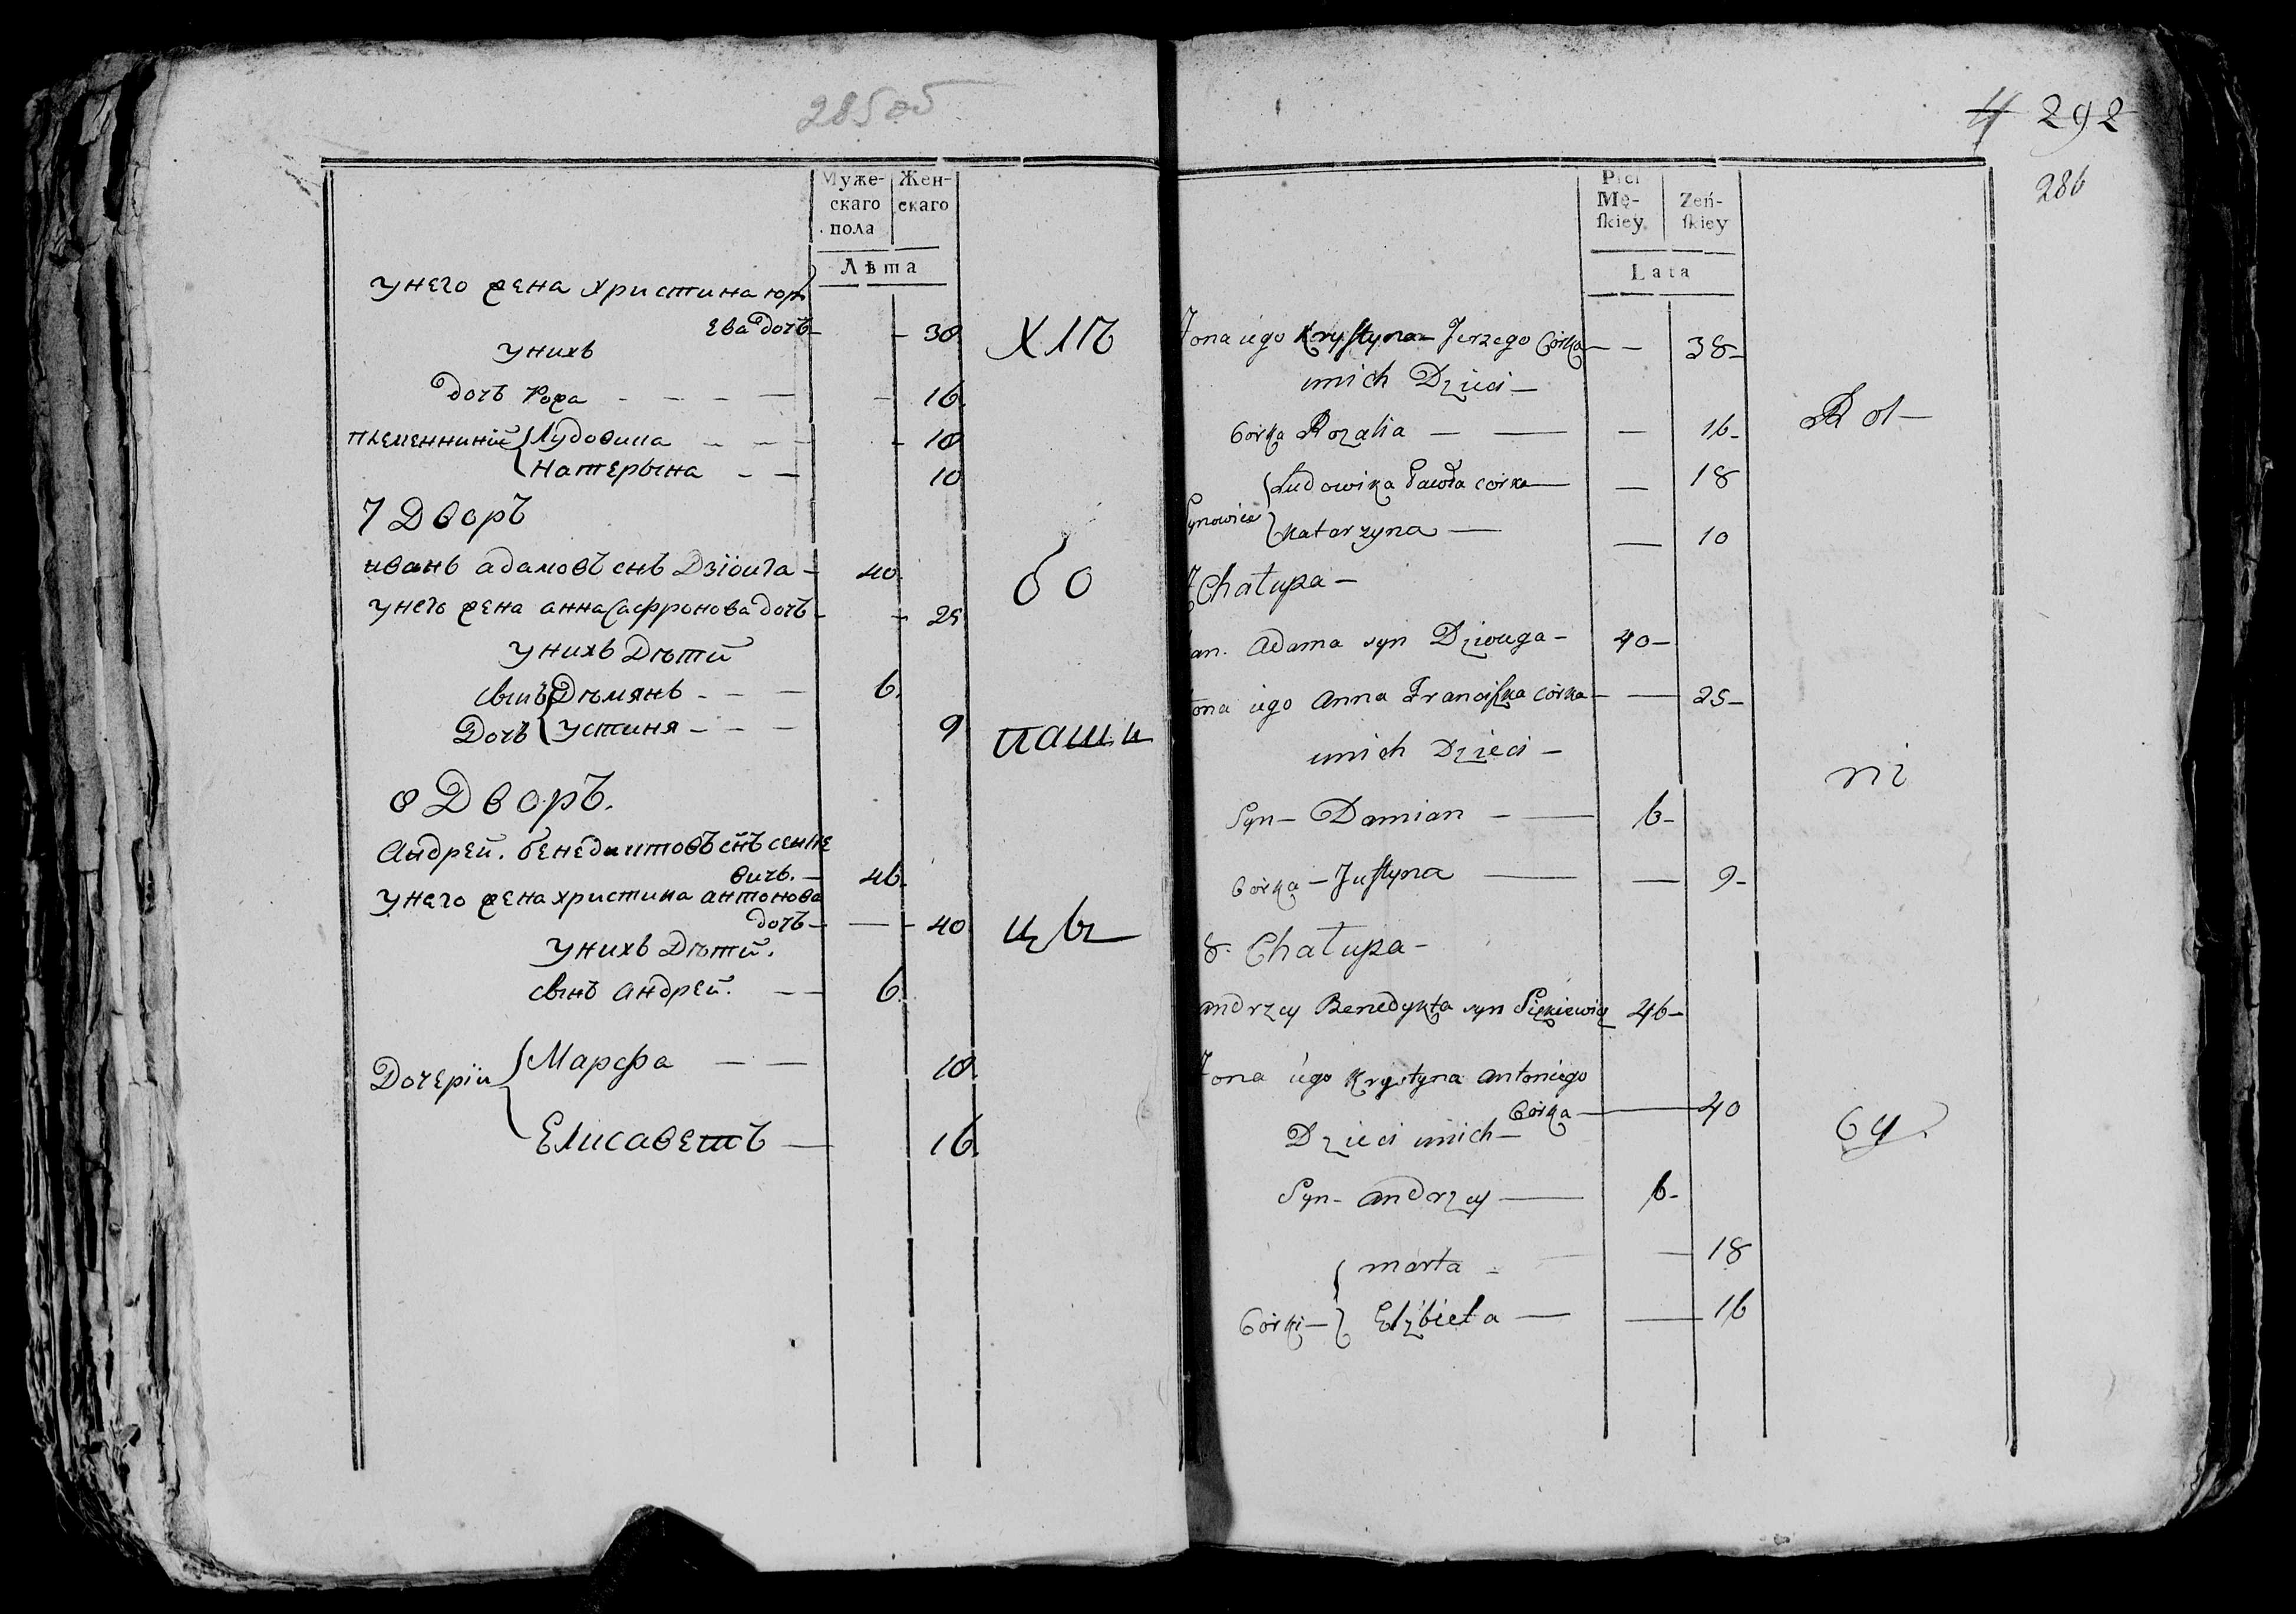 285 об
Муже-
скаго
пола
Жен-
скаго
Лѣта
унего жена христина юр
ева дочъ — 38
унихъ
дочъ Рожа — 16.
племенницй Лудовика — 18
Катерына — 10
7 Дворъ
иванъ адамовъ снъ Дзіоига — 40.
унего жена анна Сафронова дочъ — 25
унихъ Дѣтй
сынъ Дѣмянъ — 6.
Дочъ Устиня — 9
8 Дворъ.
Андрей. бенедиктовъ снъ сенке
вичъ. — 46.
унего жена христина антонова
дочъ — 40
унихъ Дѣтй.
сынъ андрей. — 6.
Дочеріи Марсфа — 18.
Елисаветъ — 16.
ХЛѢ
бо
паши
цы
4 292
286
Płci
Mę-
ſkiey
Zeń-
ſkiey
Lata
Żona iego Kryſtyna Jerzego Córka — 38 —
unich Dzieci —
Córka Rozalia — 16 —
Ludowika Pawła córka — 18
Synowice
Katarzyna — 10
7 Chałupa —
Jan. Adama syn Dziouga — 40 —
Żona iego Anna Franciſka córka — 25 —
unich Dzieci —
Syn — Damian — 6 —
Córka — Juſtyna — 9 —
8. Chałupa —
Andrzey Benedykta syn Sieńkiewicz 46 —
Żona iego Krystyna Antoniego
Córka — 40
Dzieci unich —
Syn — Andrzey — 6 —
Marta — 18
Córki — Elżbieta — 16
Rol —
ni
cy.